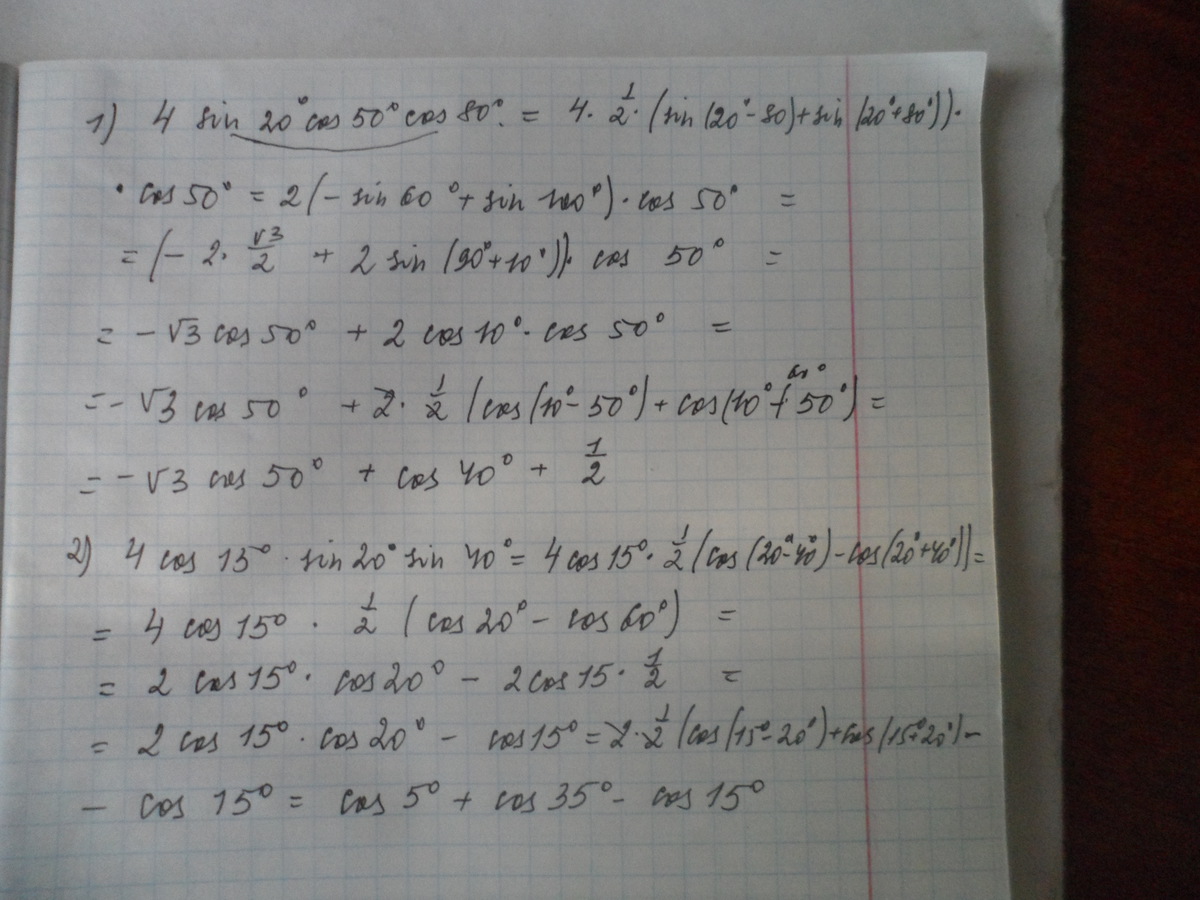 1) 4 sin 20° cos 50° cos 80°. = 4 · 1/2 · (sin (20° - 80) + sin (20° + 80°)) ·
· cos 50° = 2 (- sin 60° + sin 100°) · cos 50° =
= (- 2 · √3/2 + 2 sin (90° + 10°)) · cos 50° =
= - √3 cos 50° + 2 cos 10° · cos 50° =
60°
= - √3 cos 50° + 2 · 1/2 (cos (10° - 50°) + cos (10° + 50°) =
= - √3 cos 50° + cos 40° + 1/2
2) 4 cos 15° · sin 20° sin 40° = 4 cos 15° · 1/2 (cos (20° - 40°) - cos (20° + 40°)) =
= 4 cos 15° · 1/2 (cos 20° - cos 60°) =
= 2 cos 15° · cos 20° - 2 cos 15 · 1/2 =
= 2 cos 15° · cos 20° - cos 15° = 2 · 1/2 (cos (15° - 20°) + cos (15° + 20°) -
- cos 15° = cos 5° + cos 35° - cos 15°